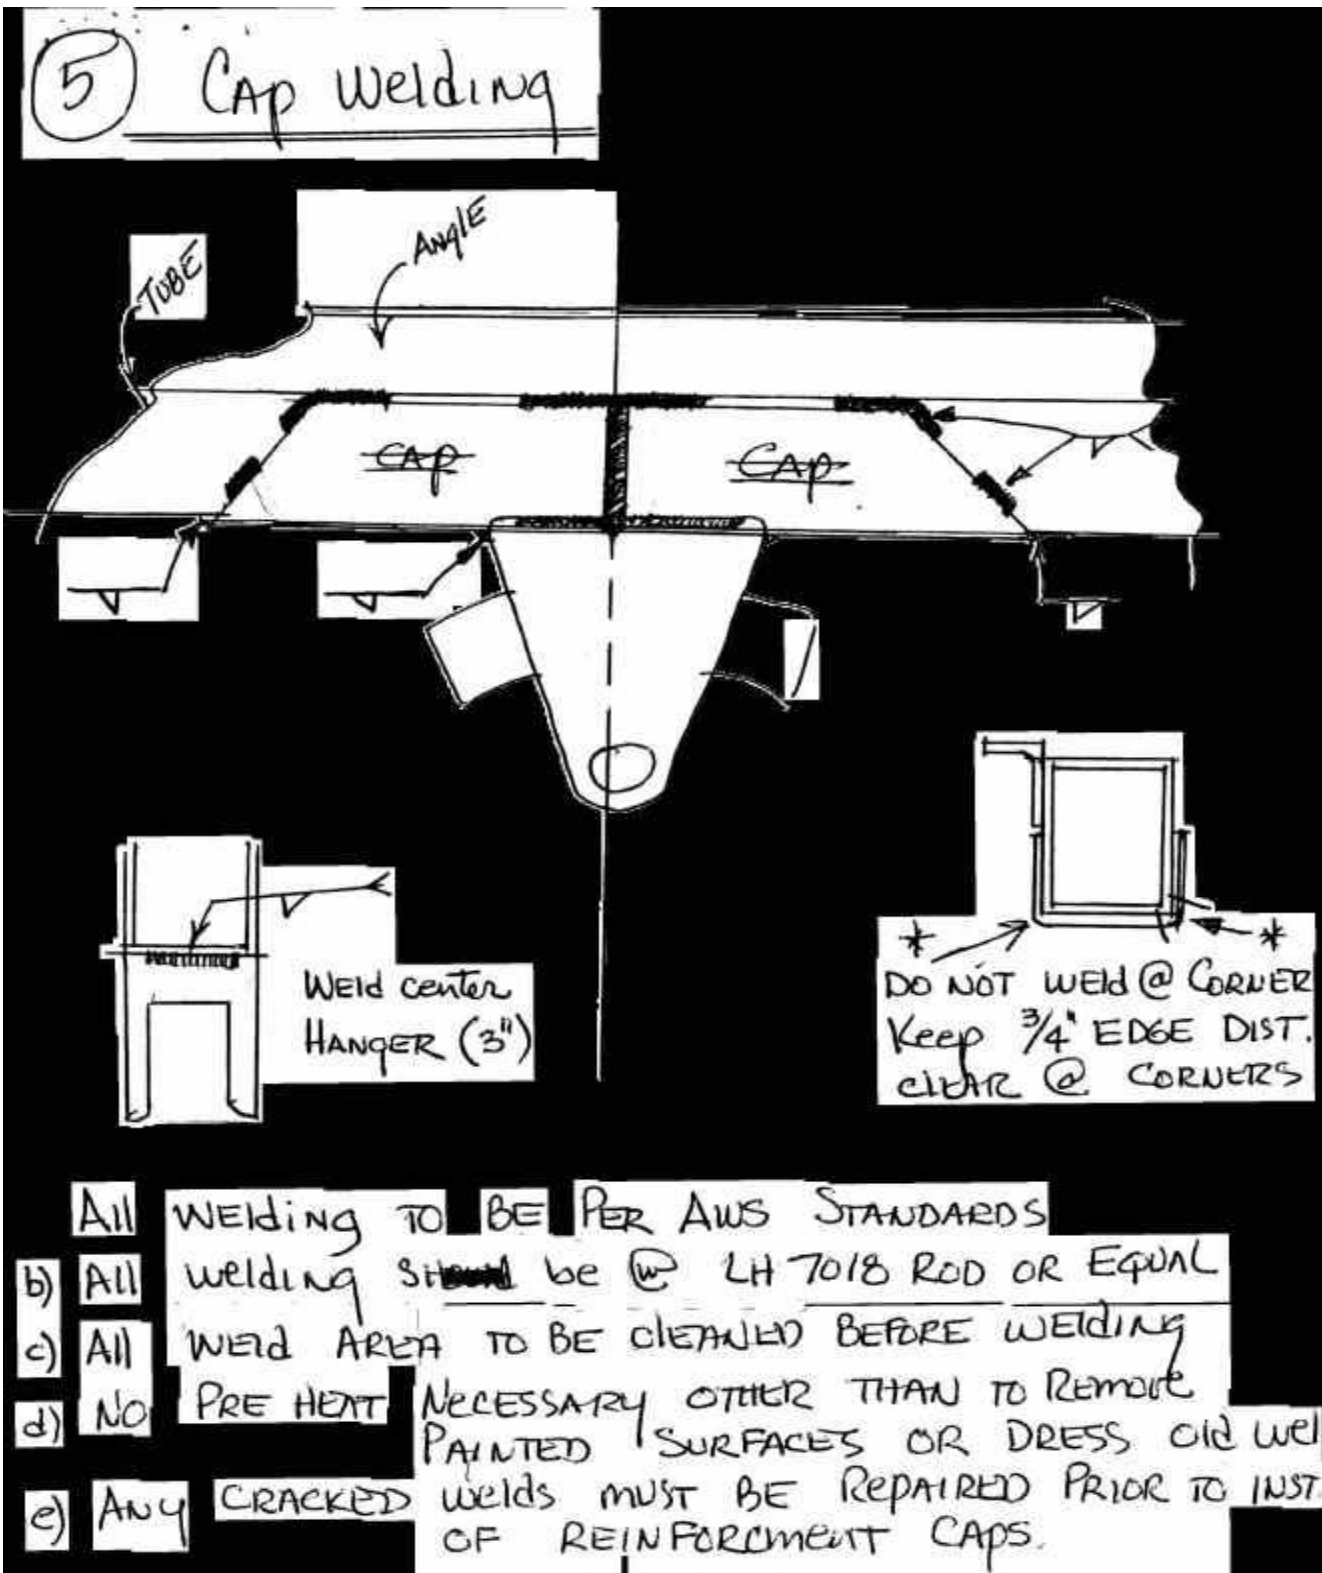 5 CAP Welding
TUBE
ANGLE
CAP
CAP
Weld center
HANGER (3")
* *
DO NOT WEld @ CORNER
Keep 3/4" EDGE DIST.
CLEAR @ CORNERS
All WElding TO BE PER AWS STANDARDS
b) All welding be @ LH 7018 ROD OR EQUAL
c) All WEld AREA TO BE CLEANED BEFORE WElding
d) NO PRE HEAT NECESSARY OTHER THAN TO REMOVE
PAINTED SURFACES OR DRESS Old wel
e) ANY CRACKED welds MUST BE REPAIRED PRIOR TO INST.
OF REINFORCMENT CAPS.